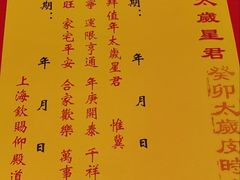 太歲星君
癸卯太歲皮時
期： 年 月 日
拜值年太歲星君 惟冀
寧 運限亨通 年庚開泰 千祥
旺 家宅平安 合家歡樂 萬事
期： 年 月 日
上海欽賜仰殿道